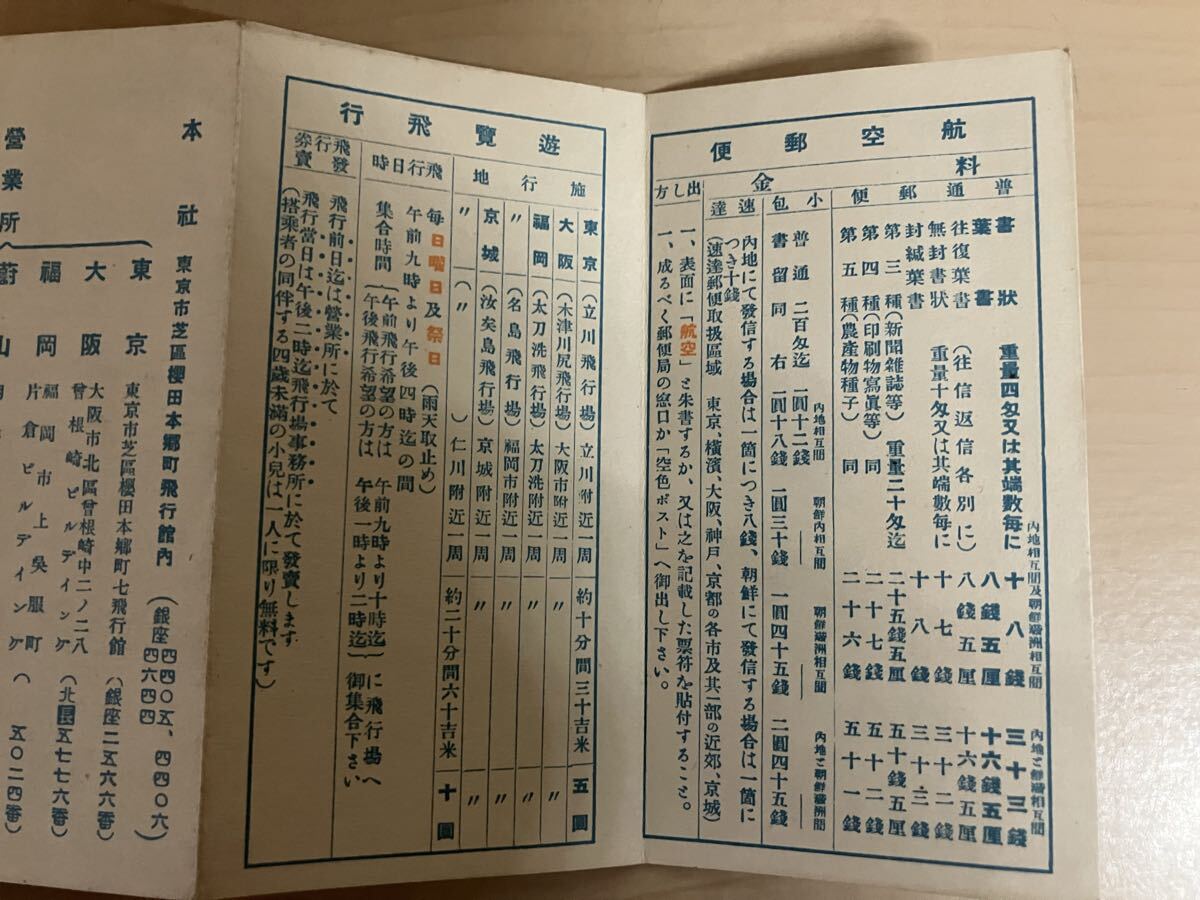 航空郵便
料金
普通郵便
内地相互間及朝鮮滿洲相互間
內地と朝鮮滿洲相互間
書狀 重量四匁又は其端數每に 十八錢 三十三錢
葉書 八錢五厘 十六錢五厘
往復葉書 (往信返信各別に) 八錢五厘 十六錢五厘
無封書狀 重量十匁又は其端數每に 十七錢 三十二錢
封緘葉書 十八錢 三十三錢
第三種(新聞雜誌等) 重量二十匁迄 二十五錢五厘 五十錢五厘
第四種(印刷物寫眞等) 同 二十七錢 五十二錢
第五種(農產物種子) 同 二十六錢 五十一錢
小包
內地相互間
朝鮮內相互間
朝鮮滿洲相互間
內地と朝鮮滿洲間
普通 二百匁迄 一圓十二錢 一圓三十錢 一圓四十五錢 二圓四十五錢
書留 同右 一圓十八錢
速達
內地にて發信する場合は一箇につき八錢、朝鮮にて發信する場合は一箇に
つき十錢
(速達郵便取扱區域 東京、橫濱、大阪、神戶、京都の各市及其一部の近郊、京城)
出し方
一、表面に「航空」と朱書するか、又は之を記載した票符を貼付すること。
一、成るべく郵便局の窓口か「空色ポスト」へ御出し下さい。
遊覽飛行
施行地
東京 (立川飛行場) 立川附近一周 約十分間三十吉米 五圓
大阪 (木津川尻飛行場) 大阪市附近一周 〃 〃
福岡 (太刀洗飛行場) 太刀洗附近一周 〃 〃
〃 (名島飛行場) 福岡市附近一周 〃 〃
京城 (汝矣島飛行場) 京城附近一周 〃 〃
〃 (〃) 仁川附近一周 約二十分間六十吉米 十圓
飛行日時
每日曜日及祭日 (雨天取止め)
午前九時より午後四時迄の間
集合時間 (午前飛行希望の方は 午前九時より十時迄
午後飛行希望の方は 午後一時より二時迄) に飛行場へ御集合下さい
飛行券發賣
飛行前日迄は營業所に於て
飛行當日は午後二時迄飛行場事務所に於て發賣します
(搭乘者の同伴する四歲未滿の小兒は一人に限り無料です)
本社 東京市芝區櫻田本鄕町飛行館內 (銀座四四〇五、四四〇六
四六四四
營業所
東京 東京市芝區櫻田本鄕町七飛行館 (銀座二五六六番)
大阪 大阪市北區曾根崎中二ノ二八
曾根崎ビルデイング (北 長 五七七六番)
福岡 福岡市上吳服町
片倉ビルデイング ( 五〇二四番
蔚山